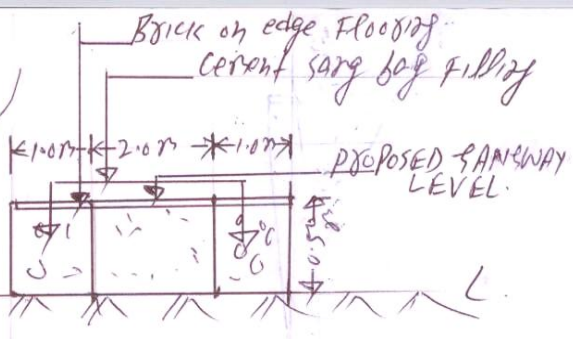 Brick on edge Flooring
Cement sang bag Filling
1.0m
2.0m
1.0m
PROPOSED GANGWAY
LEVEL.
0.5